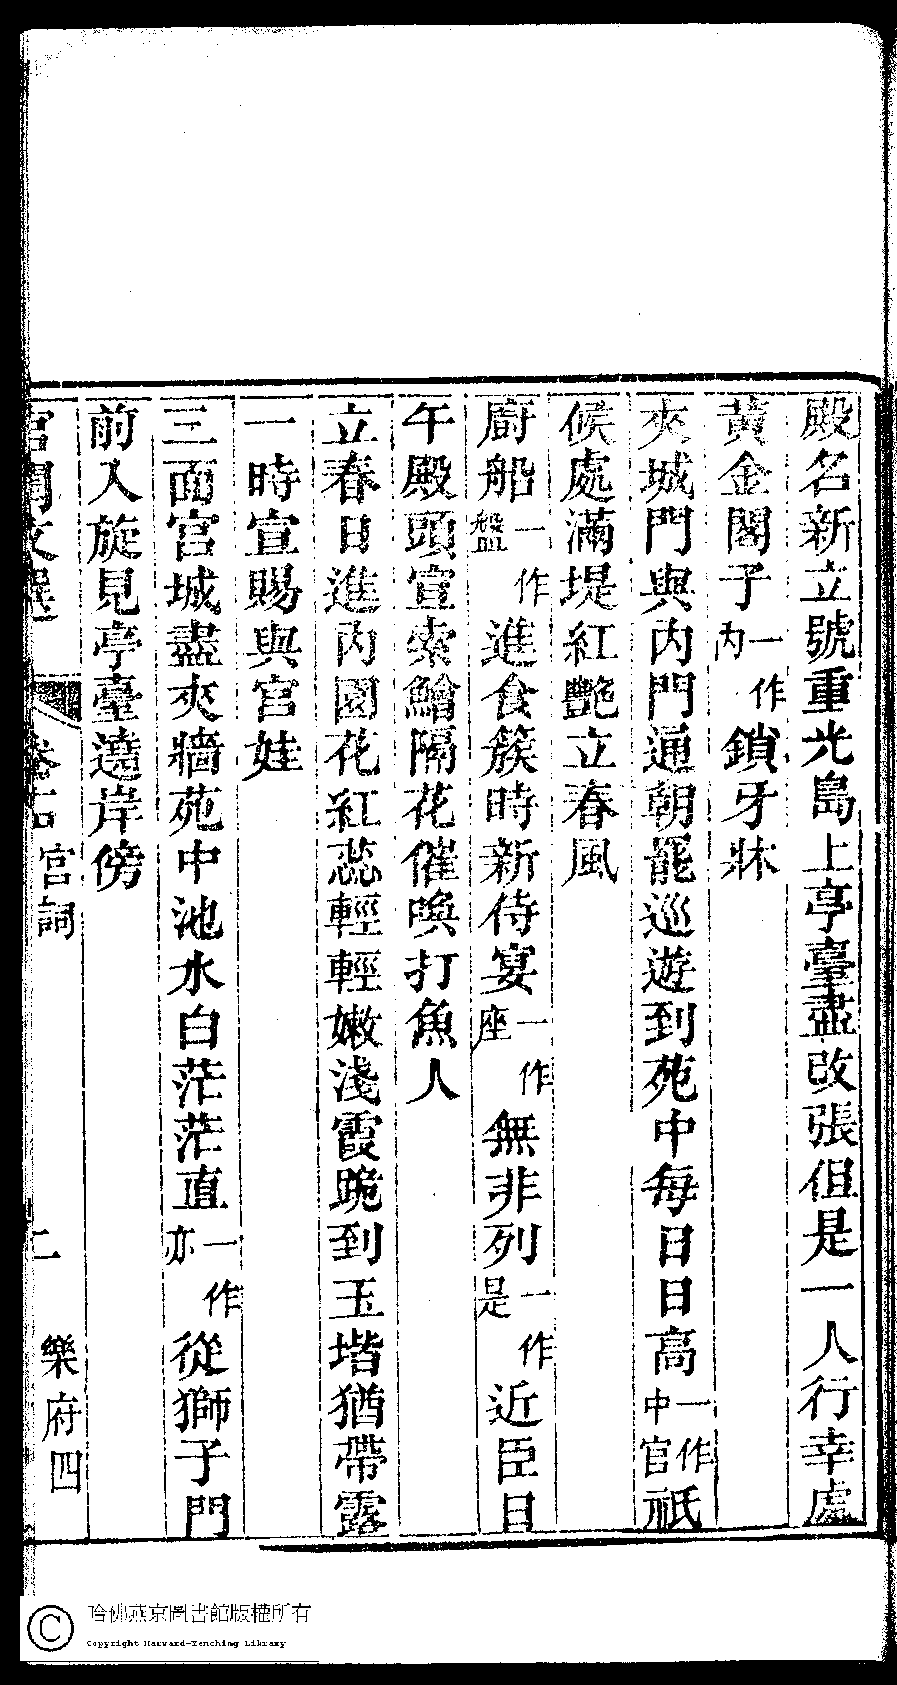 殿名新立號重光島上亭臺盡改張但是一人行幸處
黃金閣子一作內鎖牙牀
夾城門與內門通朝罷巡遊到苑中每日日高一作中官祇
候處滿堤紅艷立春風
廚船一作盤進食簇時新侍宴一作座無非列一作是近臣日
午殿頭宣索鱠隔花催喚打魚人
立春日進內園花紅蕊輕輕嫩淺霞跪到玉堦猶帶露
一時宣賜與宮娃
三面宮城盡夾牆苑中池水白茫茫直一作亦從獅子門
前入旋見亭臺遶岸傍
宮閨文選
宮詞
二
樂府四
哈佛燕京圖書館版權所有
Copyright Harvard-Yenching Library